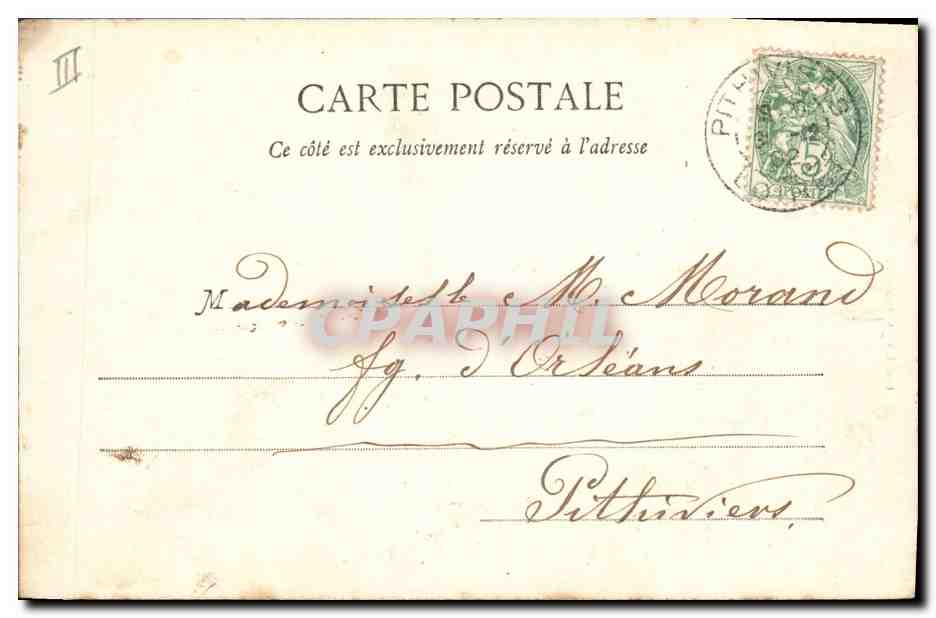 III
CARTE POSTALE
Ce côté est exclusivement réservé à l'adresse
5
Mademoiselle M. Morand
CPAPHIL
fg. d'Orléans
Pithiviers,